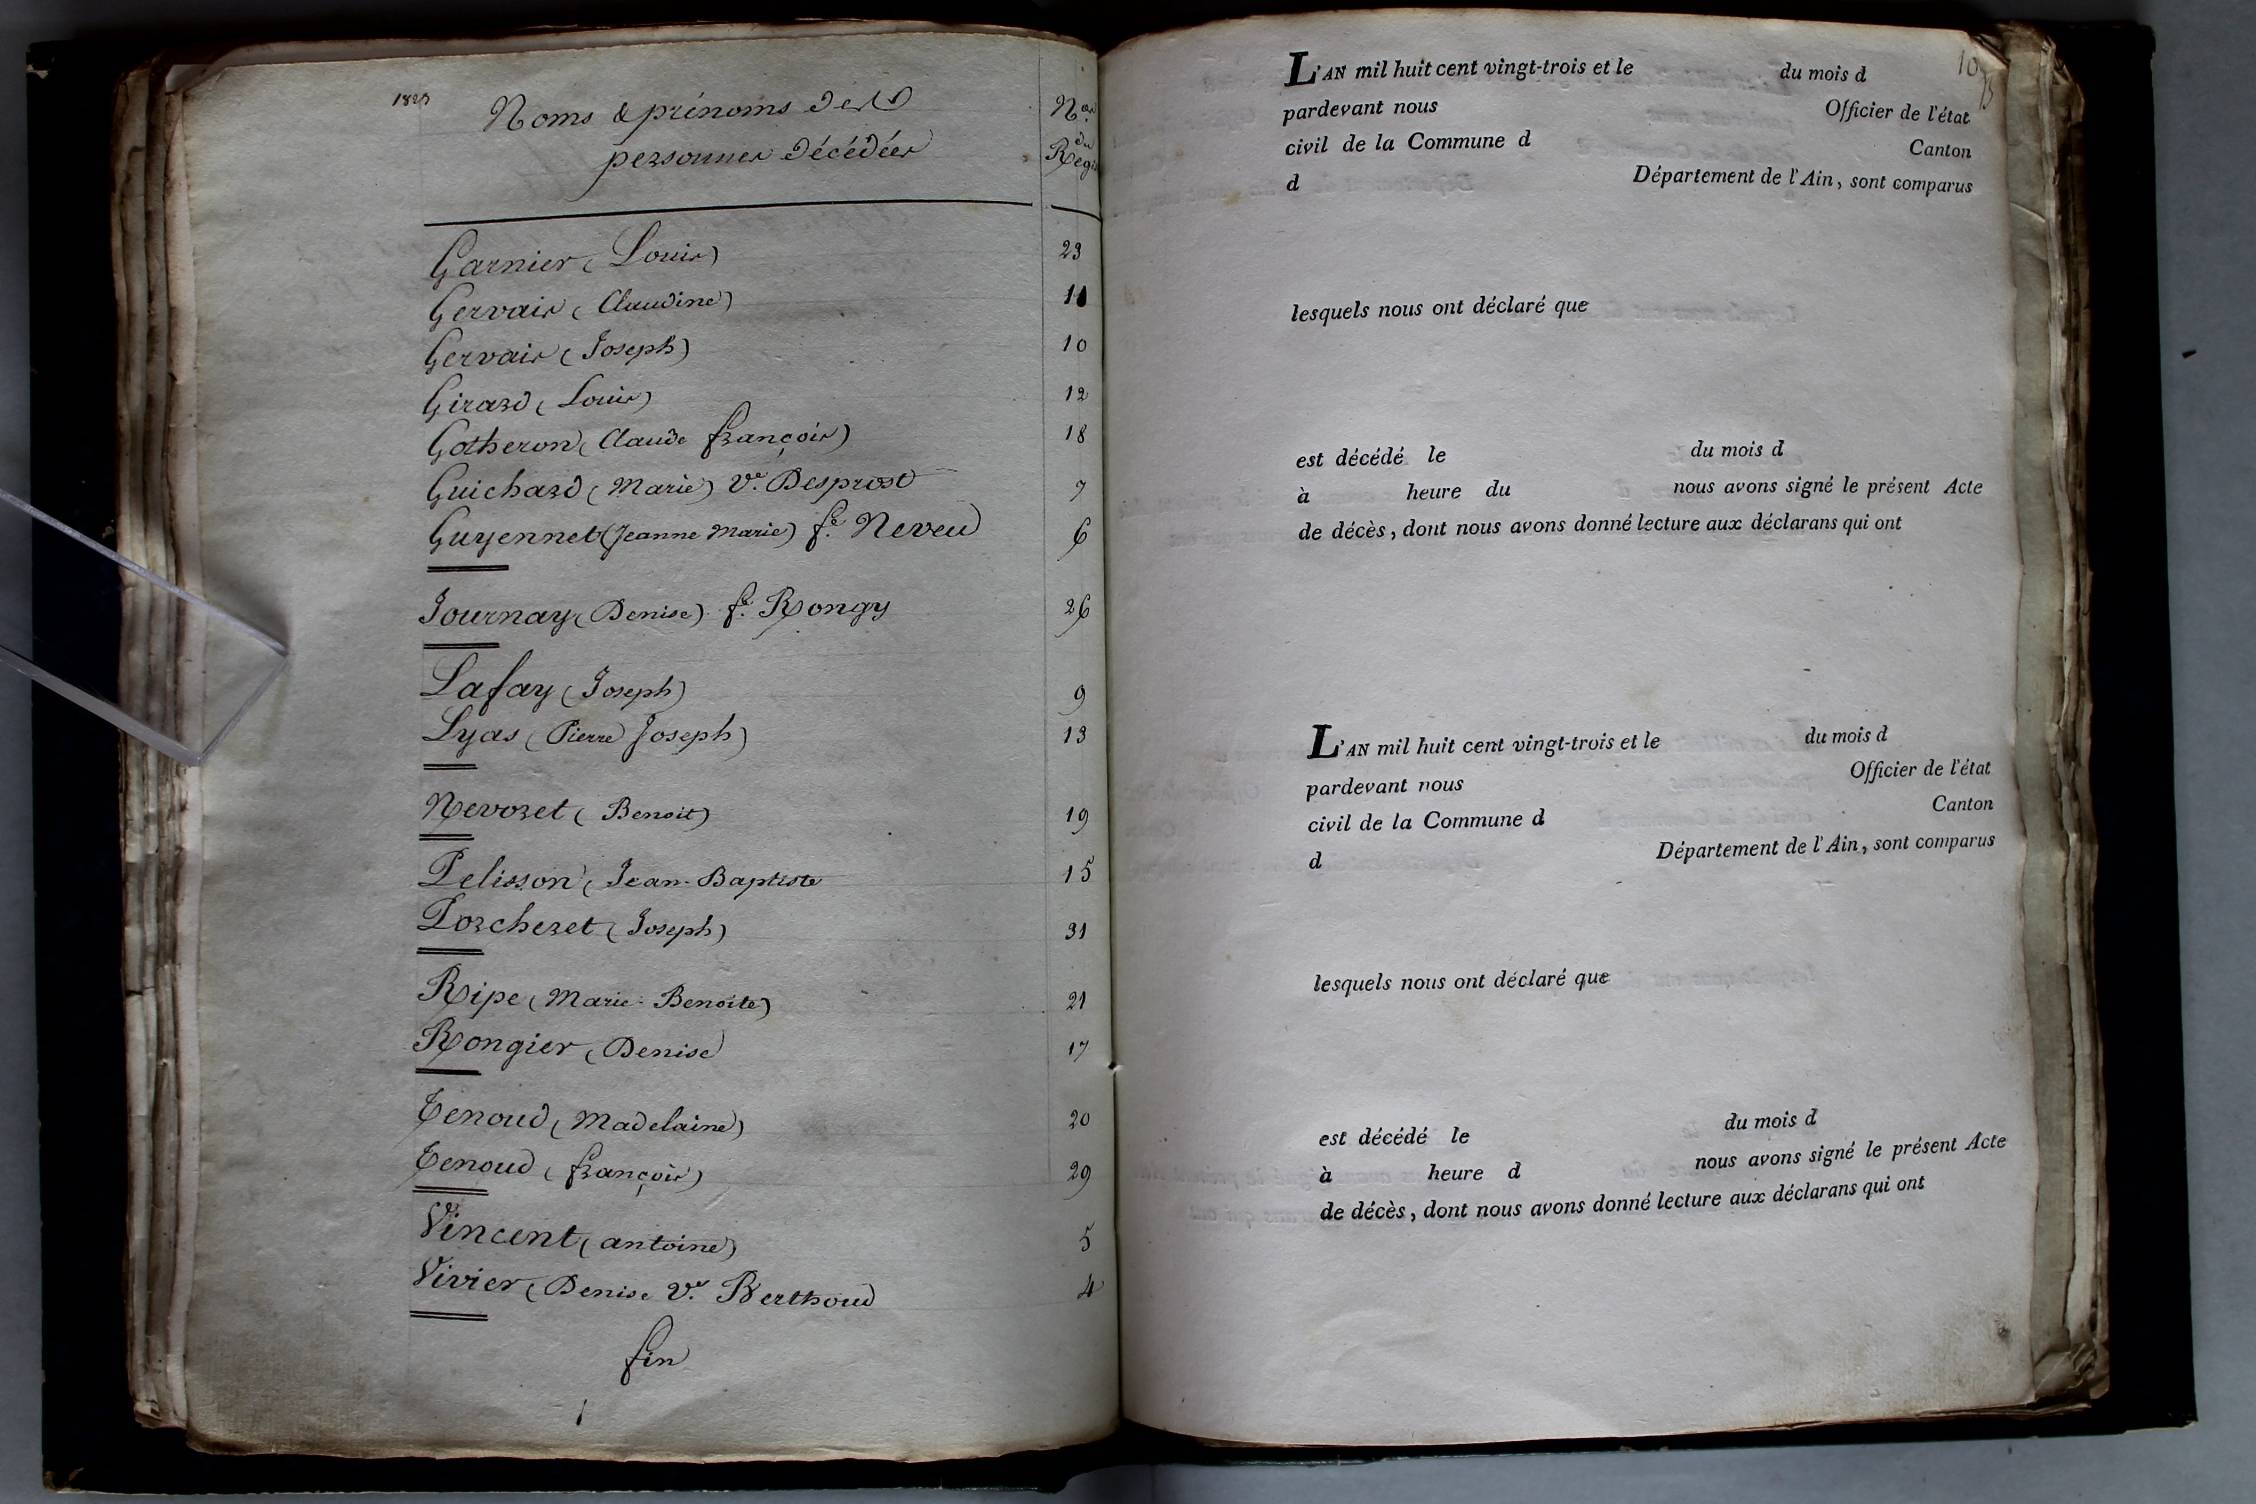 1823
Noms & prénoms des
personnes décédées
Nos
du
Regis
Garnier (Louis) 23
Gervais (Claudine) 11
Gervais (Joseph) 10
Girard (Louis) 12
Gotheron (Claude françois) 18
Guichard (Marie) Ve. Desprost 7
Guyennet (Jeanne Marie) fe. Neveu 6
Journay (Denise) fe. Rongy 26
Lafay (Joseph) 9
Lyas (Pierre Joseph) 13
Nevoret (Benoit) 19
Pelisson (Jean-Baptiste 15
Porcheret (Joseph) 31
Ripe (Marie-Benoite) 21
Rongier (Denise 17
Tenoud (Madelaine) 20
Tenoud (françois) 29
Vincent (antoine) 5
Vivier (Denise Ve. Berthoud 4
fin
10
L'AN mil huit cent vingt-trois et le du mois d
pardevant nous Officier de l'état
civil de la Commune d Canton
d Département de l'Ain, sont comparus
lesquels nous ont déclaré que
est décédé le du mois d
à heure du nous avons signé le présent Acte
de décès, dont nous avons donné lecture aux déclarans qui ont
L'AN mil huit cent vingt-trois et le du mois d
pardevant nous Officier de l'état
civil de la Commune d Canton
d Département de l'Ain, sont comparus
lesquels nous ont déclaré que
est décédé le du mois d
à heure d nous avons signé le présent Acte
de décès, dont nous avons donné lecture aux déclarans qui ont